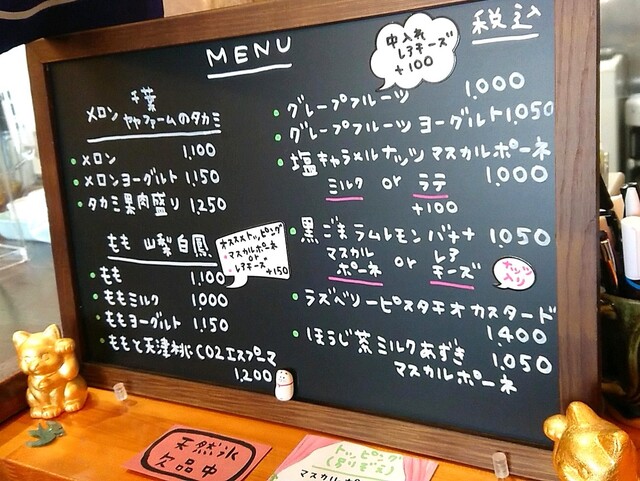 MENU
税込
中入れ
レアチーズ
+100
千葉
メロン ヤヤファームのタカミ
メロン 1,100
メロンヨーグルト 1,150
タカミ果肉盛り 1,250
もも 山梨白鳳
オススメトッピング
マスカルポーネ
or
レアチーズ +150
もも 1,100
ももミルク 1,000
ももヨーグルト 1,150
ももと天津桃CO2エスプーマ
1,200
グレープフルーツ 1,000
グレープフルーツ ヨーグルト 1,050
塩キャラメルナッツ マスカルポーネ
ミルク or ラテ 1,000
+100
黒ごまラムレモンバナナ 1,050
マスカル
ポーネ or レア
チーズ
ナッツ
入り
ラズベリーピスタチオカスタード
1,400
ほうじ茶ミルクあずき 1,050
マスカルポーネ
天然氷
欠品中
トッピング
(別リぞえ)